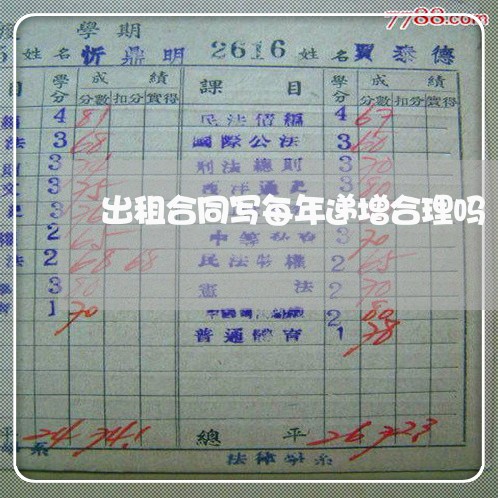 7788.com
學期
姓名 忻鼎明 2616 姓名 賈泰德
目 學分 成績 課目 學分 成績
分數 扣分 實得 分數 扣分 實得
4 81 民法債編 4 67
法 3 68 國際公法 3 60
3 刑法總則 3 70
3 75 西洋通史 3 80
出租合同写每年递增合理吗
2 65 3 70
法 2 68 68 民法物權 2 65
3 80 憲法 2 70
1 70 2 80
普通體育 1 78
平 24 74.1 總平 26 72.3
系 法律學系